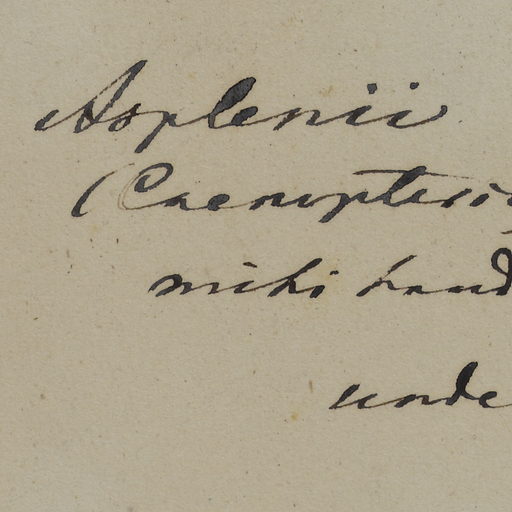 Asplenii
(Caenopteris
mihi haud
unde